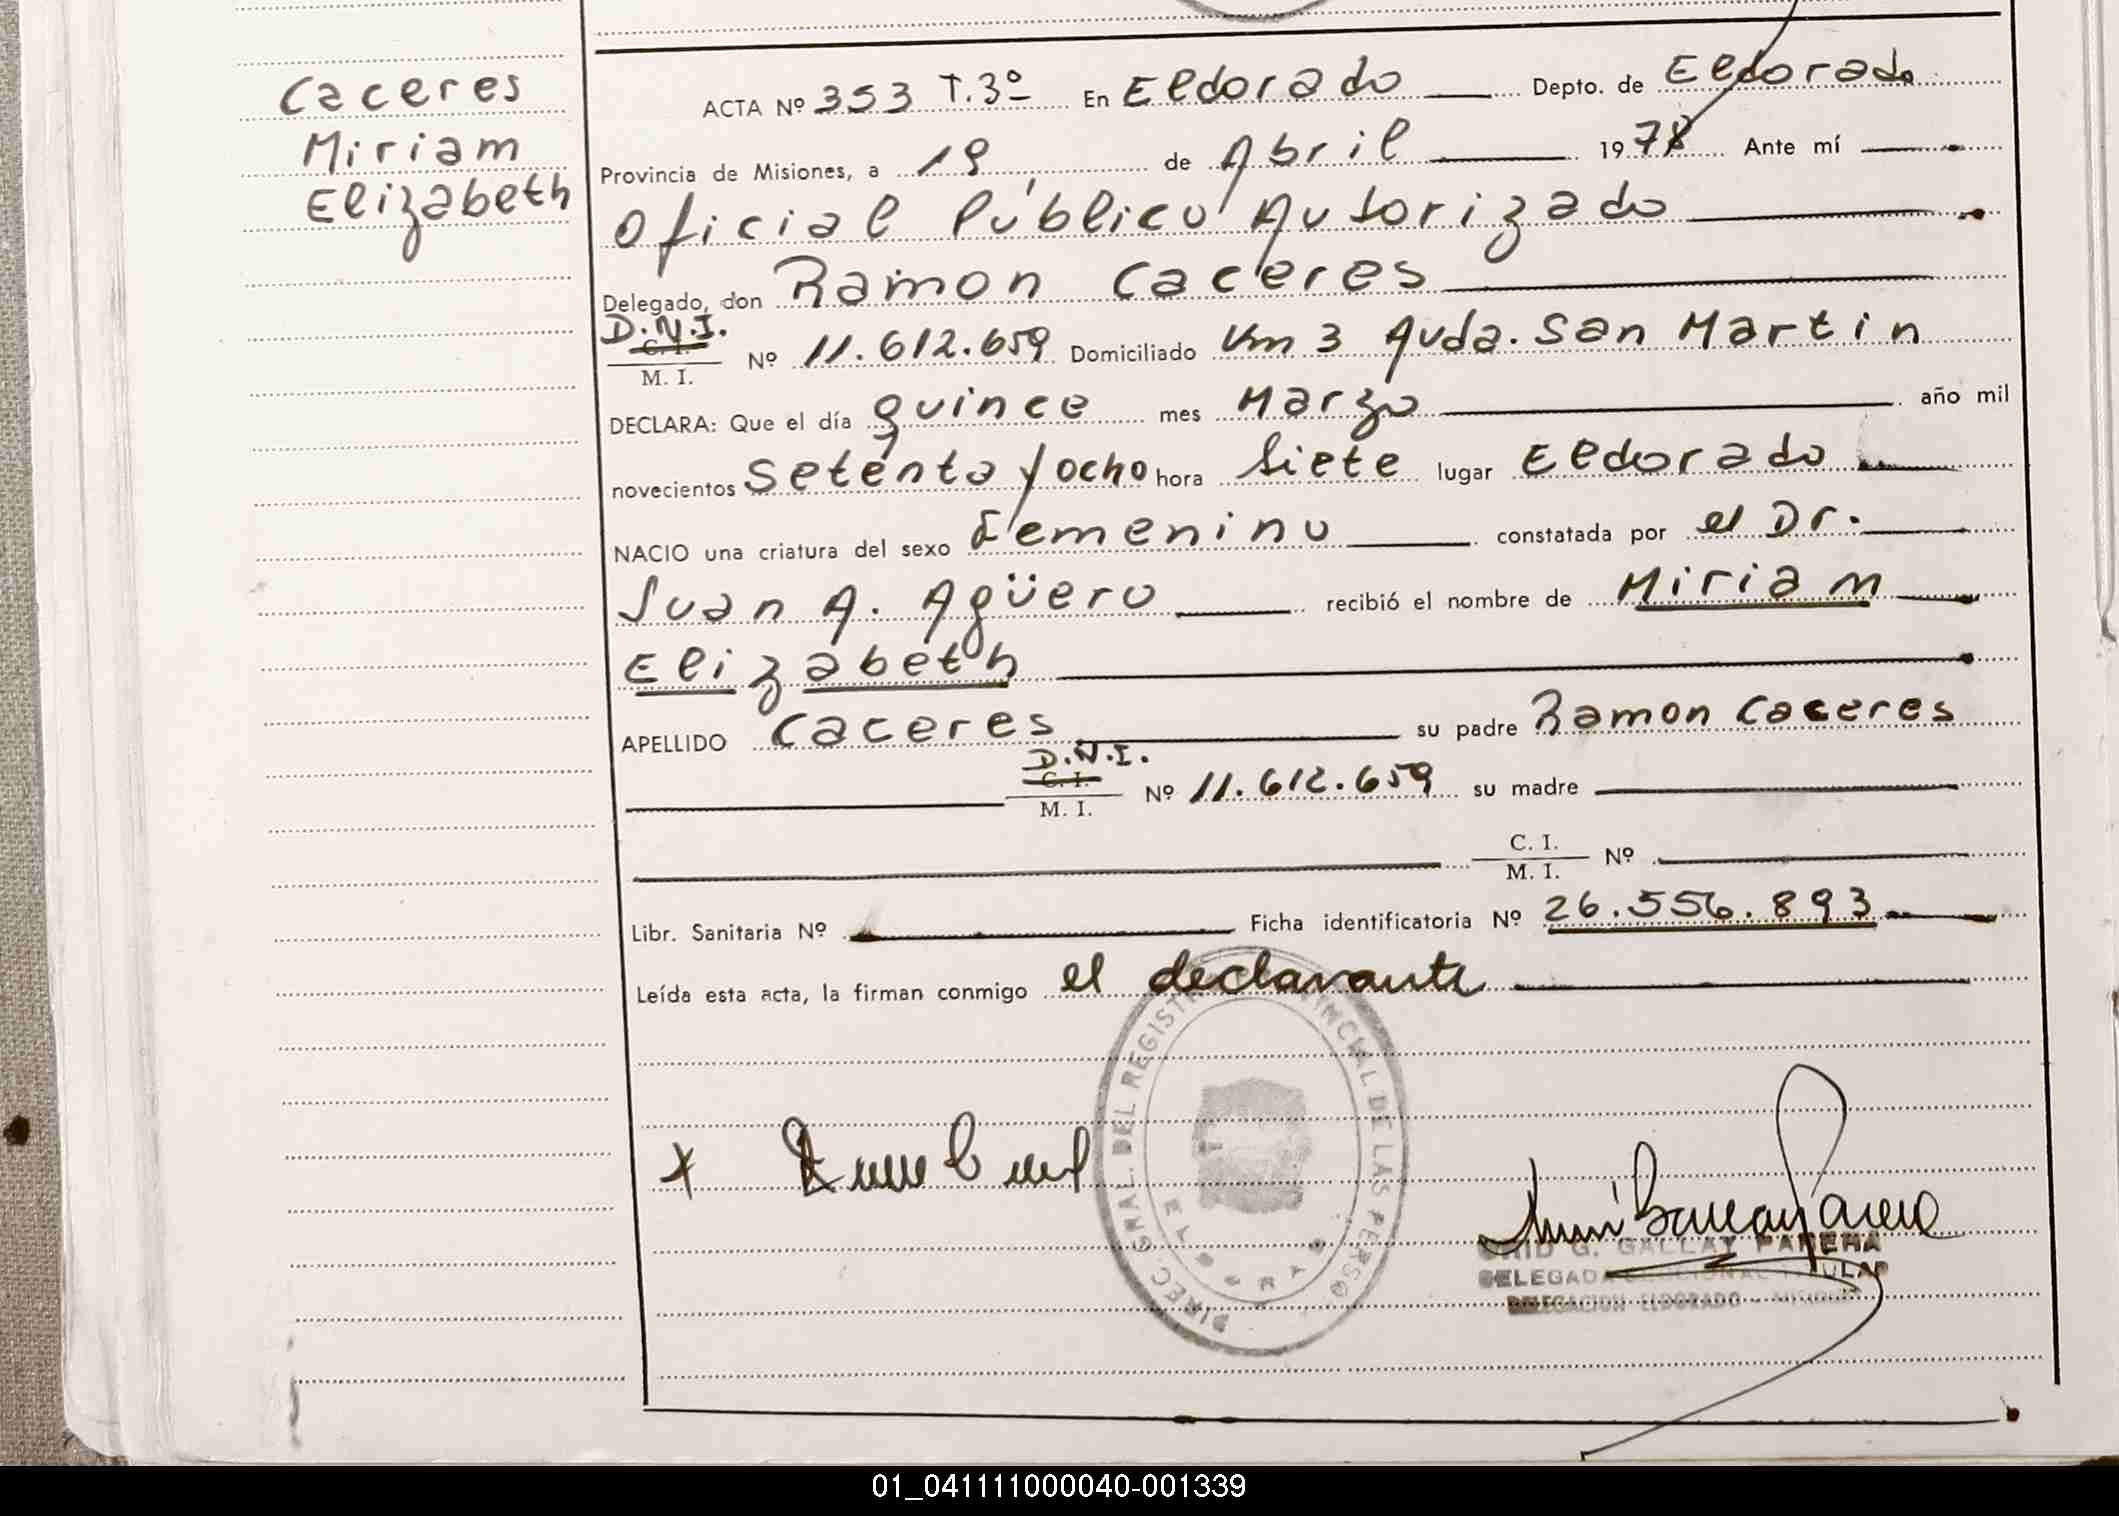 Caceres
Miriam
Elizabeth
ACTA Nº 353 T.3º En Eldorado Depto. de Eldorado
Provincia de Misiones, a 19 de Abril 1978 Ante mí
Oficial Público Autorizado
Delegado, don Ramon Caceres
D.N.I.
C. I.
M. I. Nº 11.612.659 Domiciliado Km 3 Avda. San Martin
DECLARA: Que el día quince mes Marzo año mil
novecientos setenta y ocho hora siete lugar Eldorado
NACIO una criatura del sexo femenino constatada por el Dr.
Juan A. Agüero recibió el nombre de Miriam
Elizabeth
APELLIDO Caceres su padre Ramon Caceres
D.N.I.
C. I.
M. I. Nº 11.612.659 su madre
C. I.
M. I. Nº
Libr. Sanitaria Nº Ficha identificatoria Nº 26.556.893
Leída esta acta, la firman conmigo el declarante
DIREC. GRAL. DEL REGIST INCIAL DE LAS PERSO
ELDORADO
G. GALLAY PAREHA
DELEGADA SECCIONAL TITULAR
DELEGACION ELDORADO - MISIONES
01_041111000040-001339